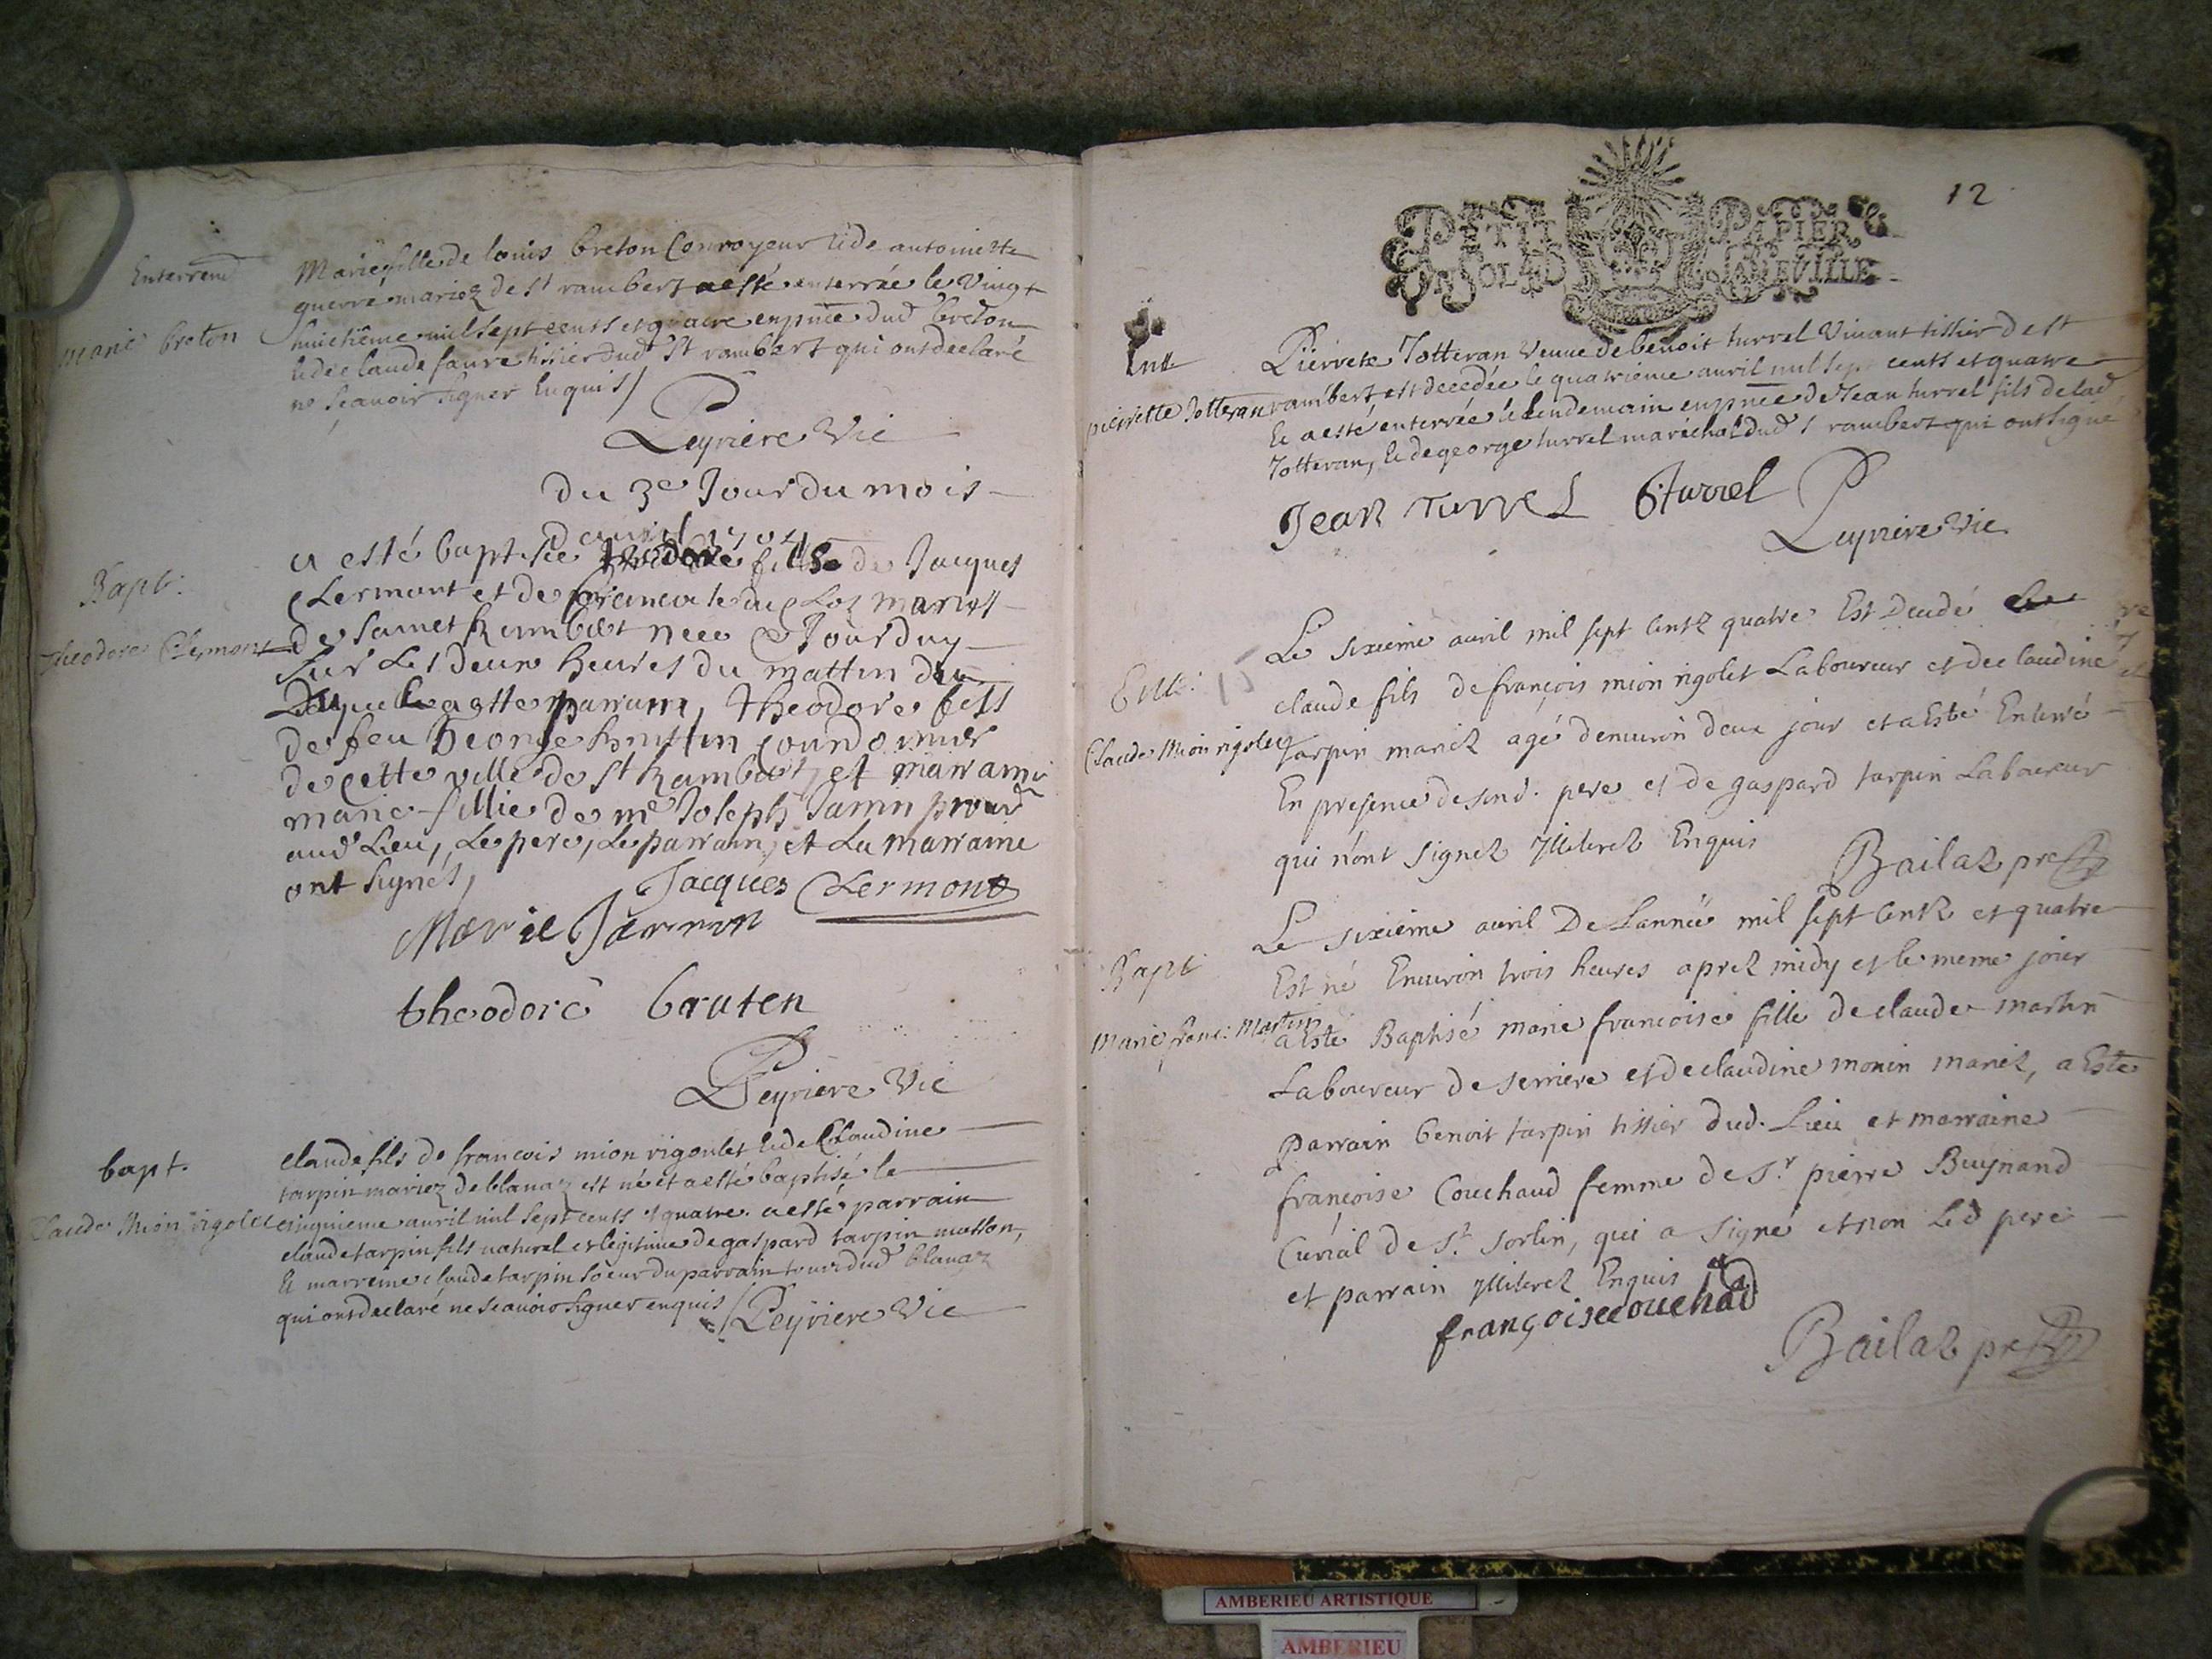 Enterremt
marie breton
Marie fille de louis breton Conroyeur et de antoinette
guerre mariez de st rambert a esté enterrée le Vingt
huictième mil sept cents et quatre en pnce dud breton
et de claude faure tissier dud St rambert qui ont declaré
ne sçauoir signer Enquis /
Peyriere Vic
du 3e Jour du mois
dauril 1704
Bapt.
Theodore Clermont
a esté baptisée theodore fille de Jacques
Clermont et de du Clos maries
de sainct Rambert nee Jourduy
sur les deux heures du mattin
Laquelle a este parrain, theodore fils
de feu George courdonnier
de cette ville de st Rambert, et marraine
marie fillie de me Joseph Jamin
aud Lieu, Le pere, Le parrain, et La marraine
ont signés,
Jacques Clermont
Marie
theodore bruten
Peyriere Vic
bapt.
Claude Mion rigolet
claude fils de francois mion rigoulet et de Claudine
tarpin mariez de blanaz est né et a esté baptisé le
cinquieme auril mil sept cents et quatre. a esté parrain
claude tarpin fils naturel et legitime de gaspard tarpin masson,
et marreine claude tarpin soeur du parrain tous dud blanaz
qui ont declaré ne sçauoir signer enquis / Peyriere Vic
12
PETIT PAPIER
UN SOL 4 D LA FEVILLE
Entt
pierrette Jotteran
Pierrete Jotteran Veuue de benoit turrel Viuant tissier de st
rambert est decedée le quatrieme auril mil sept cents et quatre
et a esté enterrée le lendemain en pnce de Jean turrel fils de lad
Jotteran, et de george turrel maréchal dud St rambert qui ont signé
Jean Turrel G turrel
Peyriere Vic
Entt.
Claude Mion rigolet
Le sixieme auril mil sept centz quatre Est Decedé
claude fils de françois mion rigolet Laboureur et de claudine
tarpin mariez agé denuiron deux jour et a Esté Enterré
En presence de sond. pere et de gaspard tarpin Laboureur
qui n'ont signez Illiterez Enquis
Bailaz pre
Bapt
Marie franc: Martin
Le sixieme auril De Lannée mil sept centz et quatre
Est né Enuiron trois heures aprez midy et le meme jour
a Esté Baptisé marie francoise fille de claude martin
Laboureur de serriere et de claudine monin mariez, a Esté
parrain benoit tarpin tissier dud. Lieu et marraine
françoise Couchaud femme de Sr. pierre Buynand
Curial de St. sorlin, qui a signé et non Led pere
et parrain Illiterez Enquis
françoise couchad
Bailaz pre
AMBERIEU ARTISTIQUE
AMBERIEU